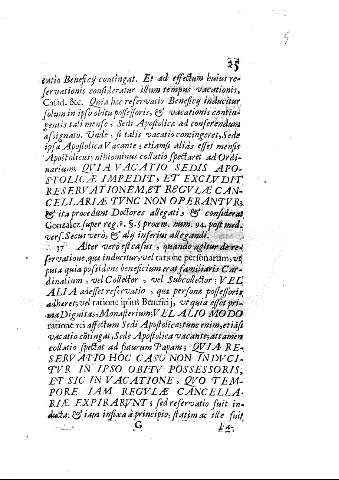 25
catio Beneficij contingat. Et ad effectum huius re-
servationis consideratur illum tempus vacationis,
Caud. &c. Quia hæc reservatio Beneficij inducitur
solum in ipso obitu possessoris, & vacationis contin-
gentis tali mense, Sedi Apostolicæ ad conferendum
assignato. Unde, si talis vacatio contingeret, Sede
ipsa Apostolica Vacante; etiamsi aliàs esset mensis
Apostolicus; nihilominus collatio spectaret ad Ordi-
narium. QUIA VACATIO SEDIS APO-
STOLICÆ IMPEDIT, ET EXCLUDIT
RESERVATIONEM, ET REGULÆ CAN-
CELLARIÆ TUNC NON OPERANTUR;
& ita procedunt Doctores allegati, & considerat
Gonzalez super reg. 8. §. 5 proœm. num. 94. post med.
vers. Secus verò, & alij inferius allegandi.
37 Alter verò est casus, quando agitur de re-
servatione, quæ inducitur, vel ratione personarum, ut
puta quia possidens beneficium erat familiaris Car-
dinalium, vel Collector, vel Subcollector: VEL
ALIA adesset reservatio, quæ personæ possessoris
adhæret; vel ratione ipsius Beneficij, ut quia esset pri-
ma Dignitas; Monasterium; VEL ALIO MODO
ratione rei affectum Sedi Apostolicæ: tunc enim, etiãsi
vacatio cõtingat, Sede Apostolica vacante; attamen
collatio spectat ad futurum Papam; QUIA RE-
SERVATIO HOC CASU NON INDUCI-
TUR IN IPSO OBITU POSSESSORIS,
ET SIC IN VACATIONE, QUO TEM-
PORE IAM REGULÆ CANCELLA-
RIÆ EXPIRARUNT; sed reservatio fuit in-
ducta; & iam infixa à principio; statim ac ille fuit
G